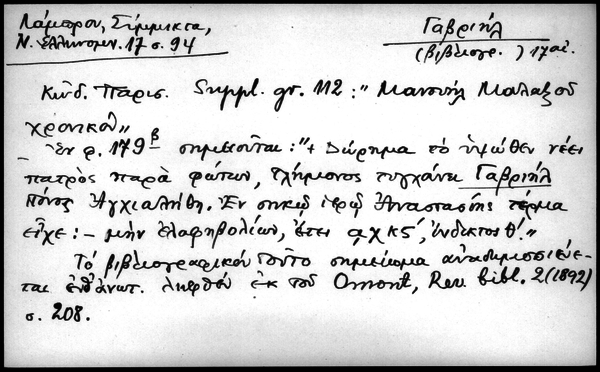 Λάμπρου, Σύμμικτα,
Ν. Ἑλληνομν. 17 σ. 94
Γαβριήλ
(βιβλιογρ. ) 17 αἰ.
Κῶδ. Παρισ. Suppl. gr. 112 : "Μανουὴλ Μαλαξοῦ
χρονικόν"
Ἐν φ. 179β σημειοῦται : "+ Δώρημα τὸ ὑψωθὲν νέει
πατρὸς παρὰ φώτων, τλήμονος τυγχάνει Γαβριήλ
πόνος Ἀγχιαλίτη. Ἐν σηκῷ ἱερῷ Ἀναστασίης τέρμα
εἶχε : – μὴν ἐλαφηβολίων, ἔτει αχκς΄, ἰνδικτος θ΄."
Τὸ βιβλιογραφικὸν τοῦτο σημείωμα ἀναδημοσιεύε-
ται ἐνθάνωτ. ληφθὲν ἐκ τοῦ Omont, Rev. bibl. 2 (1892)
σ. 208.